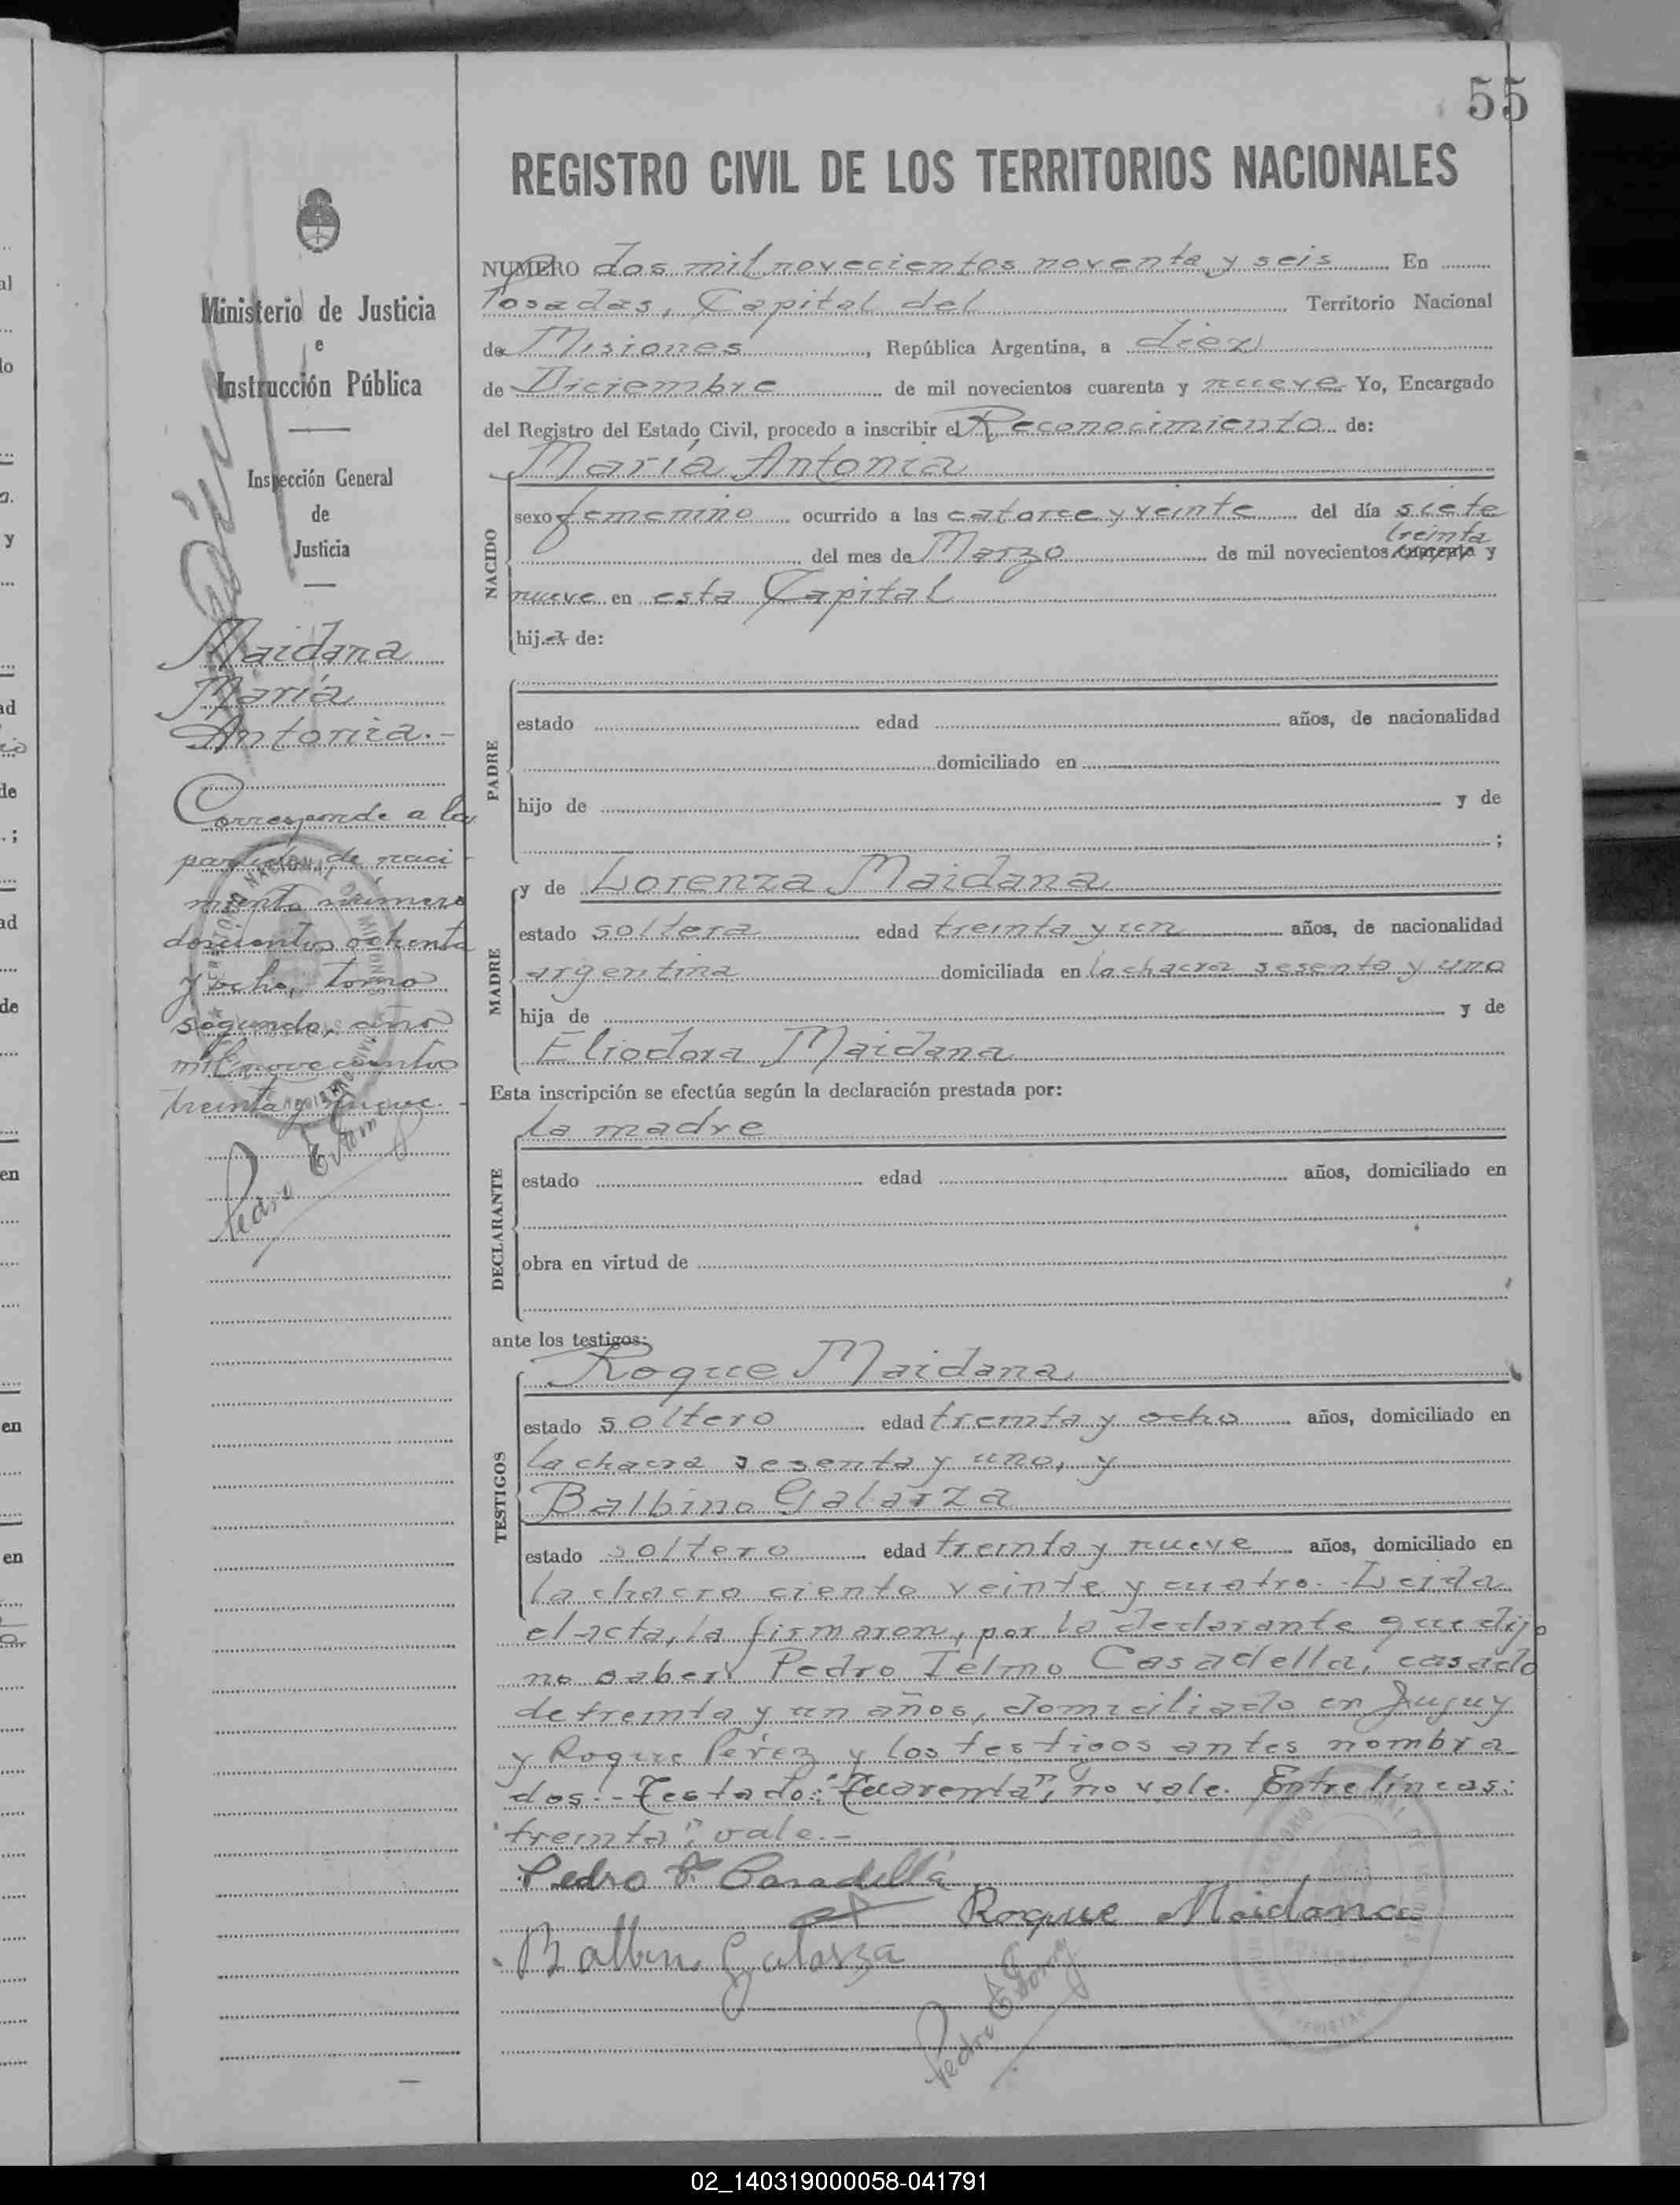 55
REGISTRO CIVIL DE LOS TERRITORIOS NACIONALES
Ministerio de Justicia
e
Instrucción Pública
Inspección General
de
Justicia
Maidana
María
Antonia.-
Corresponde a la
partida de naci-
miento número
doscientos ochenta
y ocho, tomo
segundo, año
mil novecientos
treinta y nueve.-
NUMERO dos mil novecientos noventa y seis En
Posadas, Capital del Territorio Nacional
de Misiones, República Argentina, a diez
de Diciembre de mil novecientos cuarenta y nueve Yo, Encargado
del Registro del Estado Civil, procedo a inscribir el Reconocimiento de:
María Antonia
NACIDO
sexo femenino ocurrido a las catorce y veinte del día siete
treinta
del mes de Marzo de mil novecientos cuarenta y
nueve en esta Capital
hija de:
PADRE
estado edad años, de nacionalidad
domiciliado en
hijo de y de
;
MADRE
y de Lorenza Maidana
estado soltera edad treinta y un años, de nacionalidad
argentina domiciliada en la chacra sesenta y uno
hija de y de
Eliodora Maidana
Esta inscripción se efectúa según la declaración prestada por:
DECLARANTE
la madre
estado edad años, domiciliado en
obra en virtud de
ante los testigos:
TESTIGOS
Roque Maidana
estado soltero edad treinta y ocho años, domiciliado en
la chacra sesenta y uno, y
Balbino Galarza
estado soltero edad treinta y nueve años, domiciliado en
la chacra ciento veinte y cuatro. Leida
el acta, la firmaron, por la declarante que dijo
no saber Pedro Telmo Casadella, casado
de treinta y un años, domiciliado en Jujuy
y Roque Pérez y los testigos antes nombra
dos.- Testado: "Cuarenta", no vale. Entre líneas:
"treinta", vale.-
Pedro T. Casadella
Roque Maidana
Balbin Galarza
02_140319000058-041791